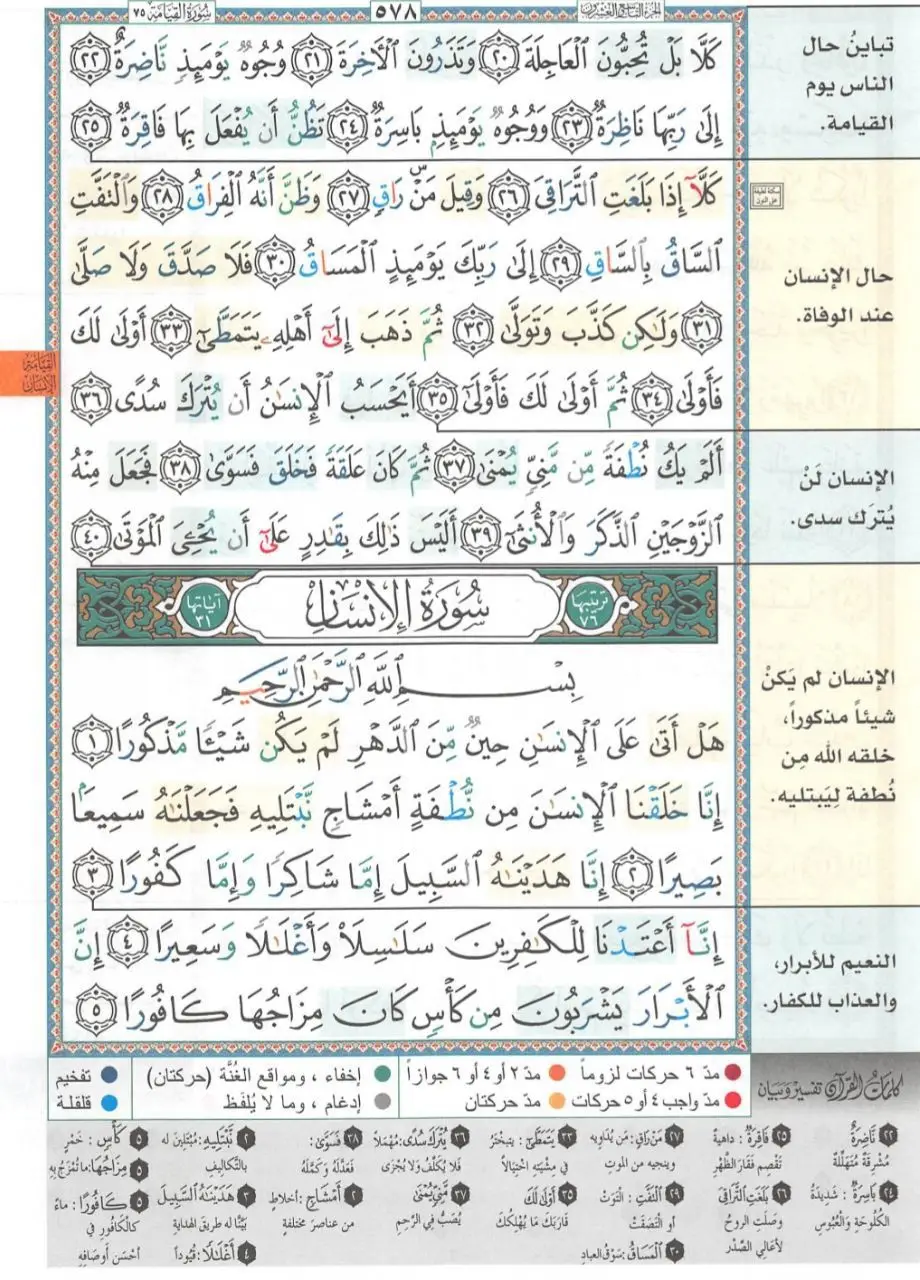 سُورَةُ القِيَامَةِ ٧٥
٥٧٨
الجزء التاسع والعشرون
كَلَّا بَلْ تُحِبُّونَ ٱلْعَاجِلَةَ ٢٠ وَتَذَرُونَ ٱلْأَخِرَةَ ٢١ وُجُوهٌ يَوْمَئِذٍ نَّاضِرَةٌ ٢٢
إِلَىٰ رَبِّهَا نَاظِرَةٌ ٢٣ وَوُجُوهٌ يَوْمَئِذٍۭ بَاسِرَةٌ ٢٤ تَظُنُّ أَن يُفْعَلَ بِهَا فَاقِرَةٌ ٢٥
كَلَّآ إِذَا بَلَغَتِ ٱلتَّرَاقِىَ ٢٦ وَقِيلَ مَنْ ۜ رَاقٍ ٢٧ وَظَنَّ أَنَّهُ ٱلْفِرَاقُ ٢٨ وَٱلْتَفَّتِ
ٱلسَّاقُ بِٱلسَّاقِ ٢٩ إِلَىٰ رَبِّكَ يَوْمَئِذٍ ٱلْمَسَاقُ ٣٠ فَلَا صَدَّقَ وَلَا صَلَّىٰ
٣١ وَلَٰكِن كَذَّبَ وَتَوَلَّىٰ ٣٢ ثُمَّ ذَهَبَ إِلَىٰٓ أَهْلِهِۦ يَتَمَطَّىٰٓ ٣٣ أَوْلَىٰ لَكَ
فَأَوْلَىٰ ٣٤ ثُمَّ أَوْلَىٰ لَكَ فَأَوْلَىٰٓ ٣٥ أَيَحْسَبُ ٱلْإِنسَٰنُ أَن يُتْرَكَ سُدًى ٣٦
أَلَمْ يَكُ نُطْفَةً مِّن مَّنِىٍّ يُمْنَىٰ ٣٧ ثُمَّ كَانَ عَلَقَةً فَخَلَقَ فَسَوَّىٰ ٣٨ فَجَعَلَ مِنْهُ
ٱلزَّوْجَيْنِ ٱلذَّكَرَ وَٱلْأُنثَىٰٓ ٣٩ أَلَيْسَ ذَٰلِكَ بِقَٰدِرٍ عَلَىٰٓ أَن يُحْـِۧىَ ٱلْمَوْتَىٰ ٤٠
ترتيبها ٧٦
سُورَةُ الإِنسَانِ
آياتها ٣١
بِسْمِ ٱللَّهِ ٱلرَّحْمَٰنِ ٱلرَّحِيمِ
هَلْ أَتَىٰ عَلَى ٱلْإِنسَٰنِ حِينٌ مِّنَ ٱلدَّهْرِ لَمْ يَكُن شَيْـًٔا مَّذْكُورًا ١
إِنَّا خَلَقْنَا ٱلْإِنسَٰنَ مِن نُّطْفَةٍ أَمْشَاجٍ نَّبْتَلِيهِ فَجَعَلْنَٰهُ سَمِيعًۢا
بَصِيرًا ٢ إِنَّا هَدَيْنَٰهُ ٱلسَّبِيلَ إِمَّا شَاكِرًا وَإِمَّا كَفُورًا ٣
إِنَّآ أَعْتَدْنَا لِلْكَٰفِرِينَ سَلَٰسِلَا۟ وَأَغْلَٰلًا وَسَعِيرًا ٤ إِنَّ
ٱلْأَبْرَارَ يَشْرَبُونَ مِن كَأْسٍ كَانَ مِزَاجُهَا كَافُورًا ٥
تباينُ حال
الناس يوم
القيامة.
حال الإنسان
عند الوفاة.
الإنسان لَنْ
يُترَك سدى.
الإنسان لم يَكنْ
شيئاً مذكوراً،
خلقه الله مِن
نُطفة لِيَبتليه.
النعيم للأبرار،
والعذاب للكفار.
القِيَامَة
الإنسَان
كلمات القرآن تفسير وبيان
مدّ ٦ حركات لزوماً
مدّ ٢ أو ٤ أو ٦ جوازاً
إخفاء ، ومواقع الغُنَّة (حركتان)
تفخيم
مدّ واجب ٤ أو ٥ حركات
مدّ حركتان
إدغام ، وما لا يُلفَظ
قلقلة
٢٢ نَاضِرَةٌ
مُشْرِقَةٌ مُتَهَلِّلَة
٢٤ بَاسِرَةٌ : شديدَة
الكُلُوحَةِ وَالْعُبُوسِ
٢٥ فَاقِرَةٌ : داهية
تَقْصِم فَقَارَ الظَّهْر
٢٦ بَلَغَتِ التَّرَاقِيَ
وصَلَتِ الروحُ
لأعَالي الصَّدْر
٢٧ مَنْ رَاقٍ : مَن يُدَاوِيه
وينجيه من الموتِ
٢٩ الْتَفَّتِ : الْتَوَتْ
أو التَصَقَتْ
٣٠ الْمَسَاقُ : سَوْقُ العباد
٣٣ يَتَمَطَّىٰ : يتبختَرُ
في مِشْيَتِهِ اخْتِيَالاً
٣٥ أَوْلَىٰ لَكَ
قَارَبَكَ مَا يُهْلِكُكَ
٣٦ يُتْرَكَ سُدًى : مُهْمَلاً
فَلا يُكَلَّفُ وَلا يُجْزَى
٣٧ مَنِيٍّ يُمْنَىٰ
يُصَبُّ فِي الرَّحِمِ
٣٨ فَسَوَّىٰ :
فَعَدَّلَهُ وَكَمَّلَهُ
٢ أَمْشَاجٍ : أخلاطٍ
من عناصرَ مختلفة
٢ نَبْتَلِيهِ : مُبْتَلِينَ له
بالتَّكاليفِ
٣ هَدَيْنَاهُ السَّبِيلَ
بيَّنَّا له طريقَ الهِداية
٤ أَغْلَالًا : قُيُوداً
٥ كَأْسٍ : خَمْرٍ
٥ مِزَاجُهَا : ما تُمْزَجُ بِهِ
٥ كَافُورًا : ماءً
كالكَافُورِ في
أحْسَن أوصَافِه